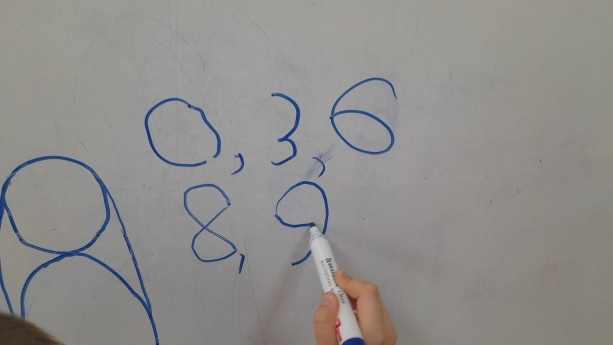 0, 3, 6
8, 9